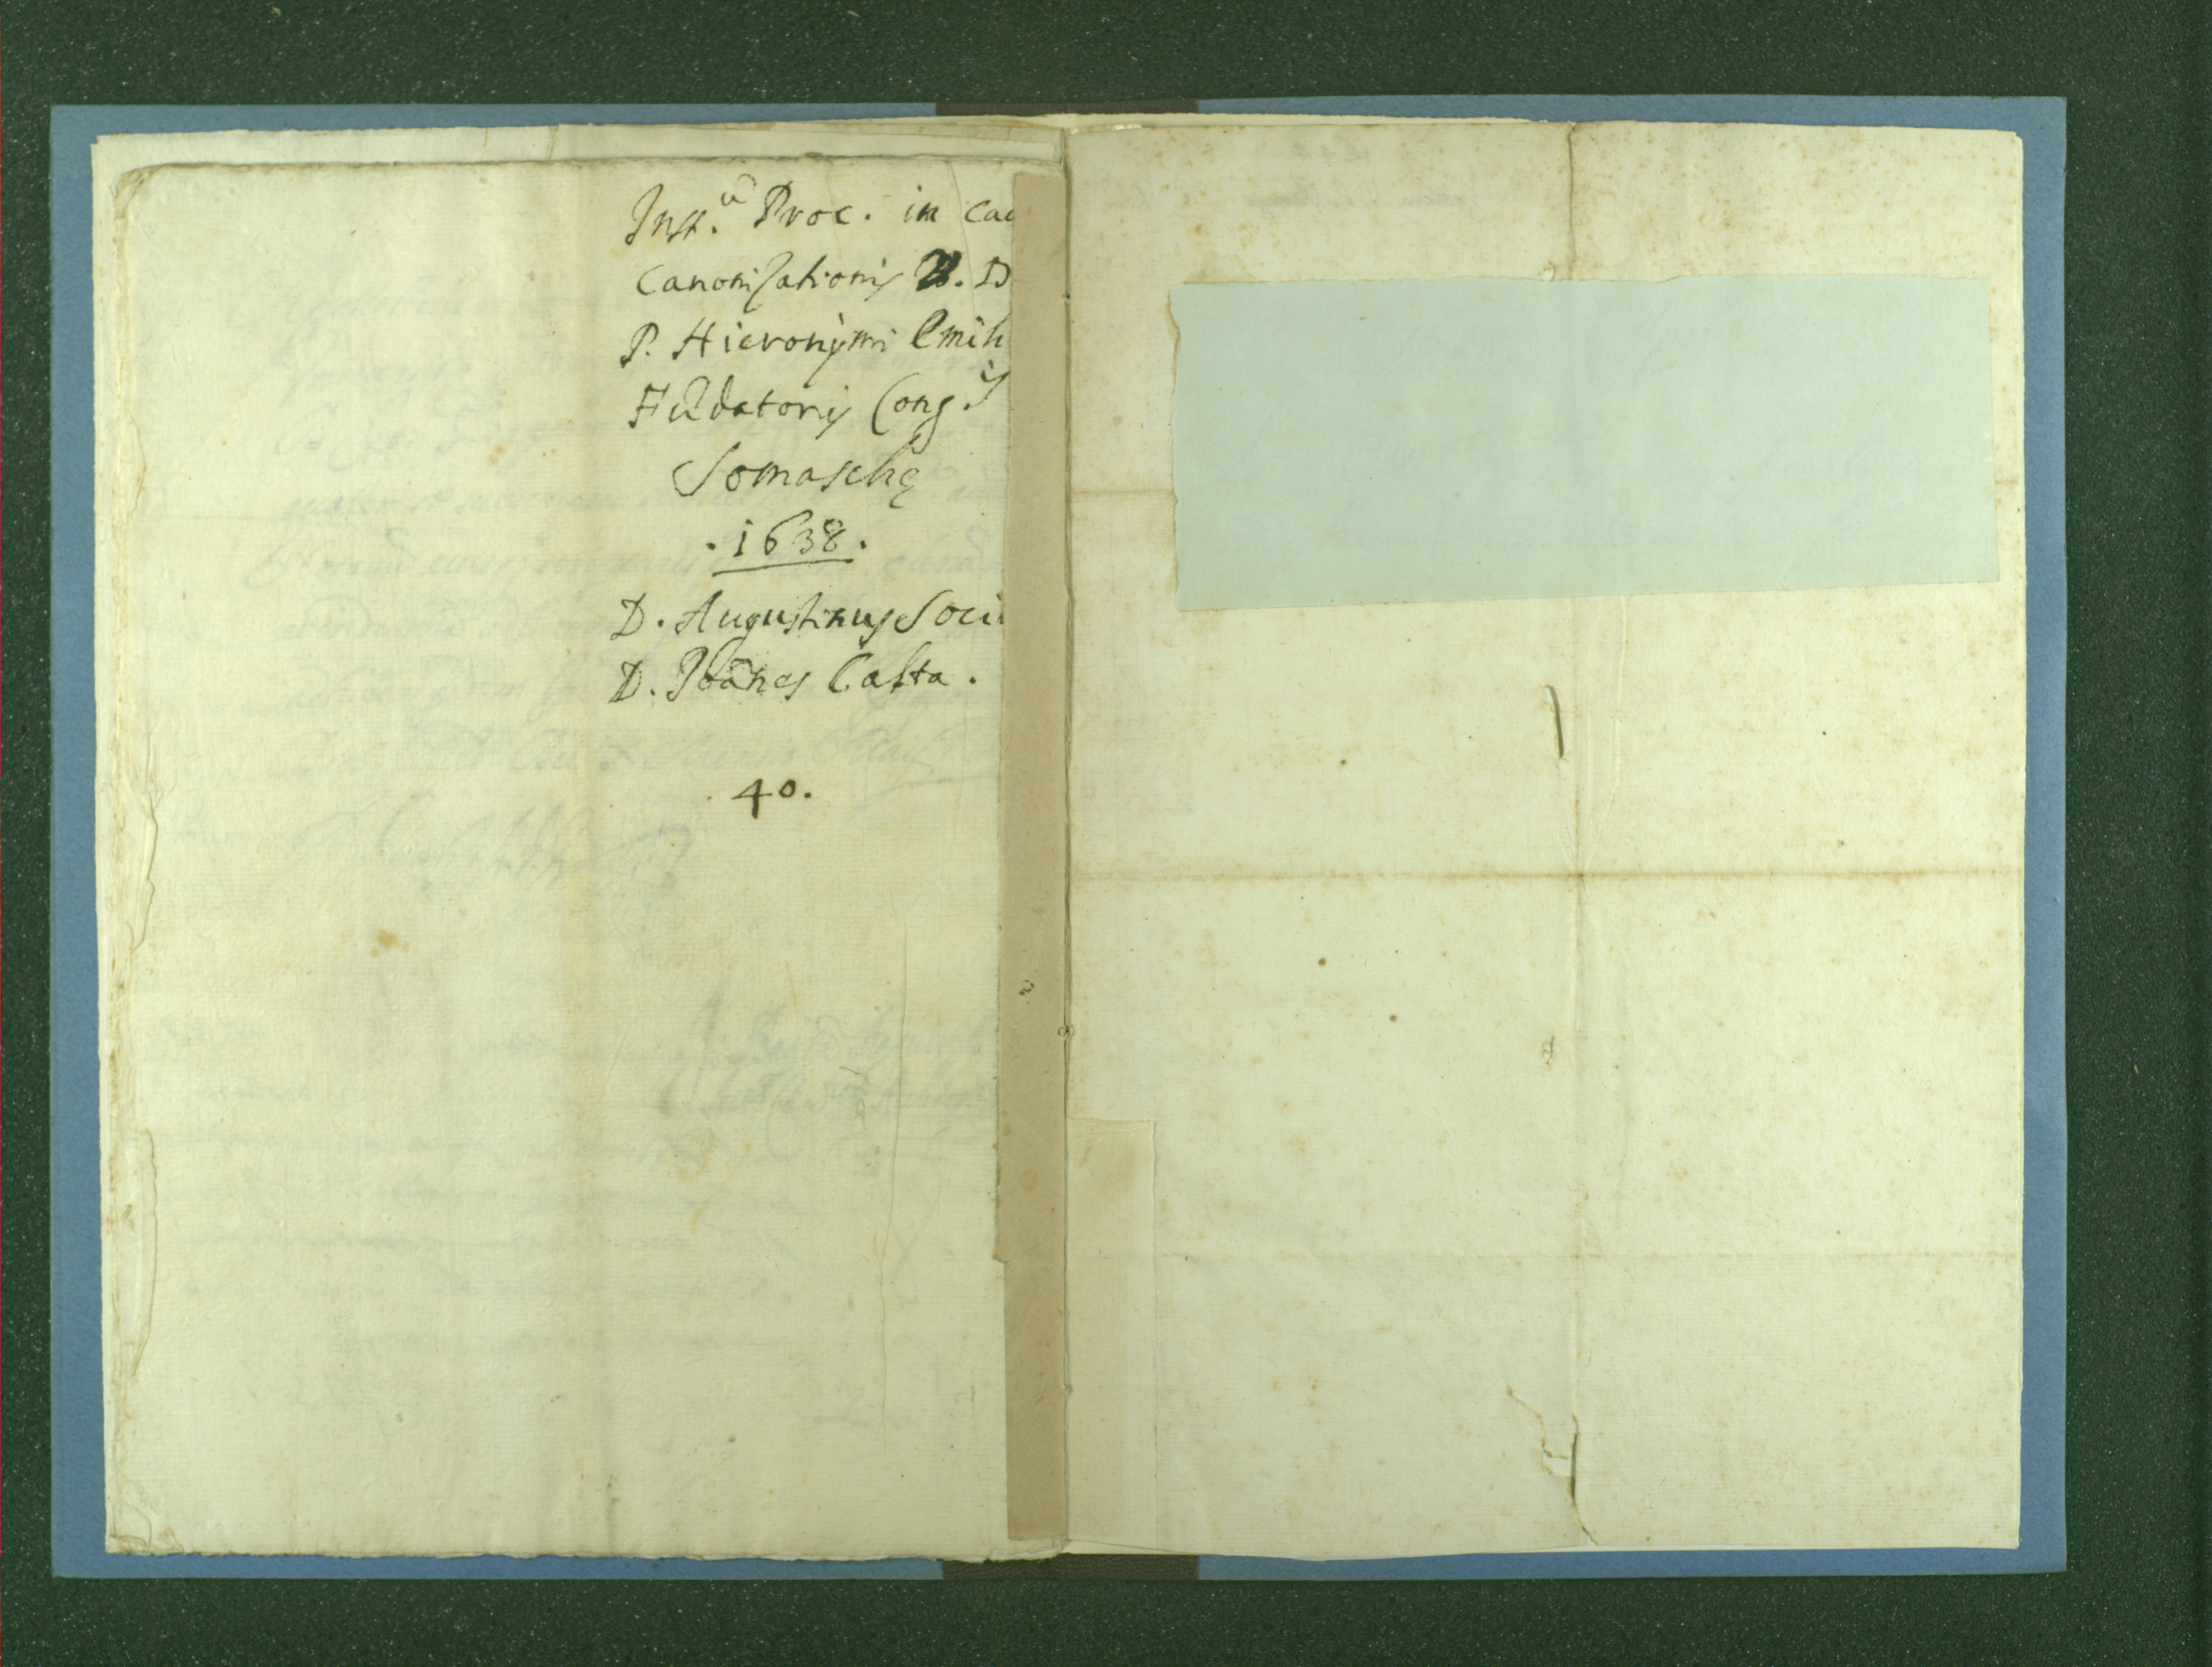 Inst.ũ Proc. in cau
Canonisationis B. D
P. Hieronymi Emili
Fũdatoris Cong.is
Somaschę
.1638.
D. Augustinus Soci
D. Joãnes Casta.
40.